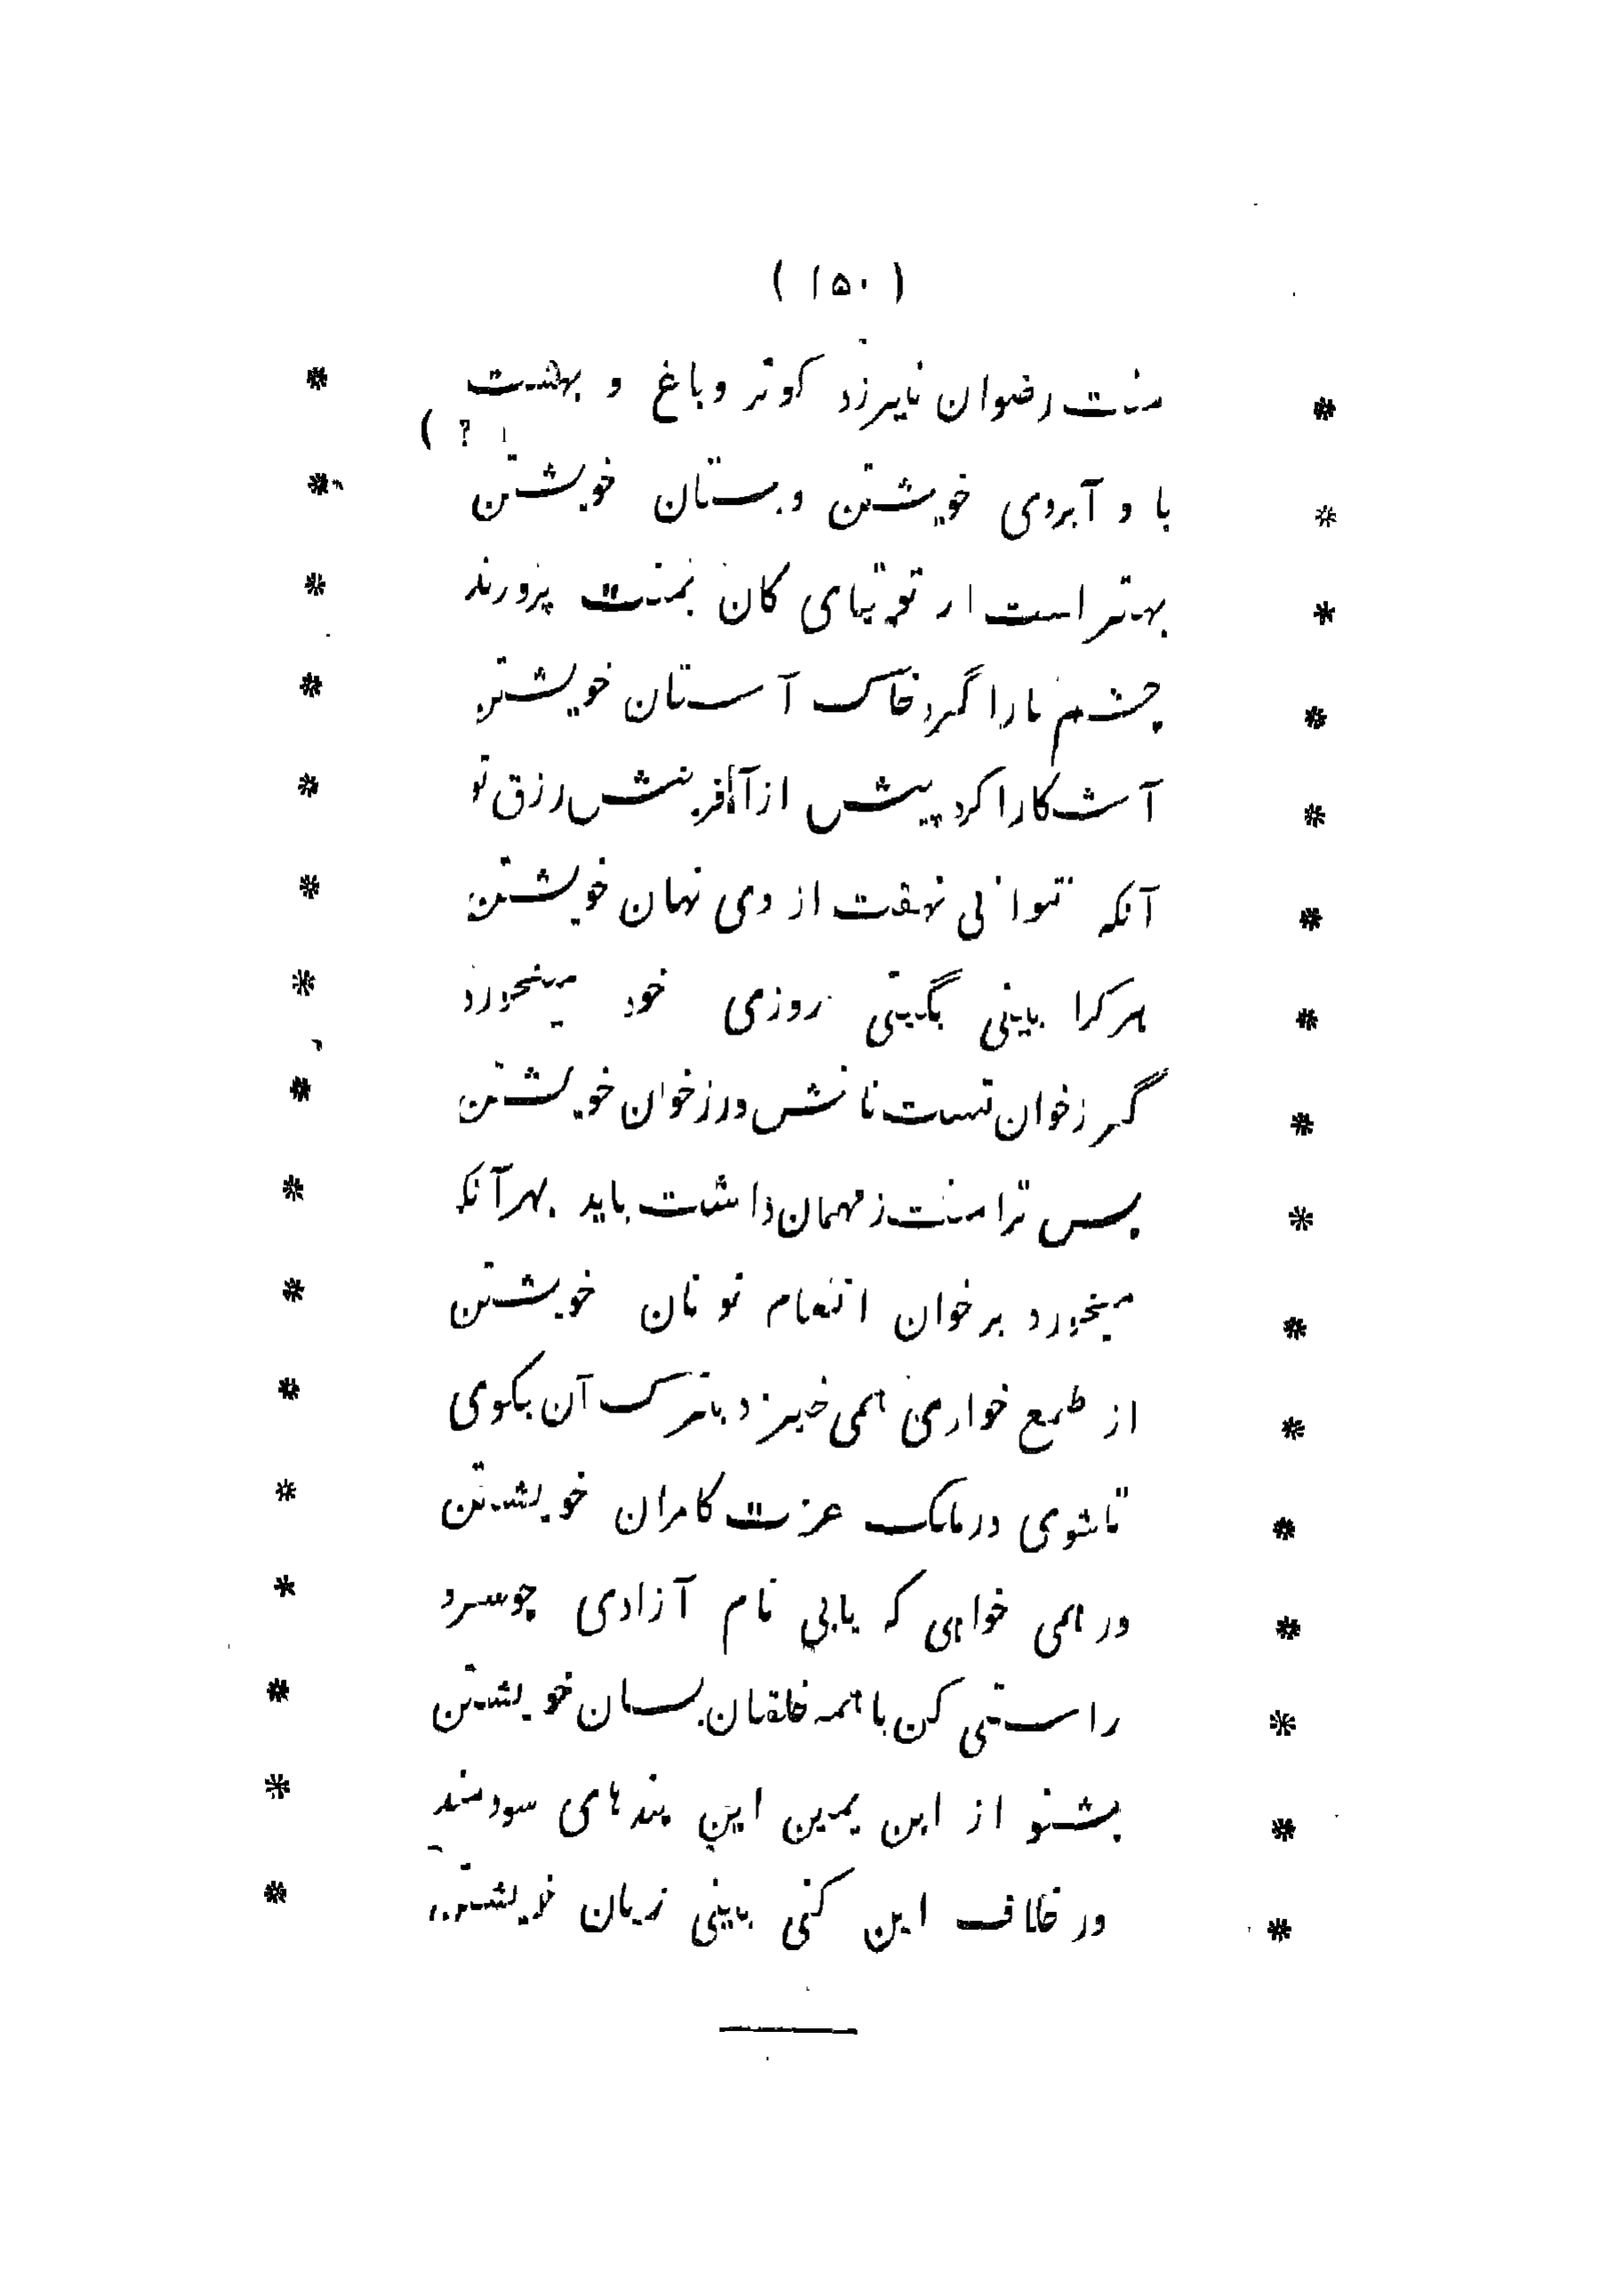 ( ۱۵۰ )
* منت رضوان نیرزد کوثر و باغ و بهشت *
( ? )
* با و آبروی خویشتن و بستان خویشتن *
* بهتر است از توتیای کان بمنت پرورند *
* چشم ما را گرد خاک آستان خویشتن *
* آشکارا کرد پیش از آفرینش رزق تو *
* آنکه نتوانی نهفت از وی نهان خویشتن *
* هر کرا بینی بگیتی روزی خود میخورد *
* گر ز خوان تست نانش ور ز خوان خویشتن *
* پس ترا منت ز مهمان داشت باید بهر آنک *
* میخورد بر خوان انعام تو نان خویشتن *
* از طمع خواری همی خیزد بترک آن بگوی *
* تا شوی در ملک عزت کامران خویشتن *
* ور همی خواهی که یابی نام آزادی چو سرو *
* راستی کن با همه خلقان بسان خویشتن *
* بشنو از ابن یمین این پندهای سودمند *
* ور خلاف این کنی بینی زیان خویشتن *